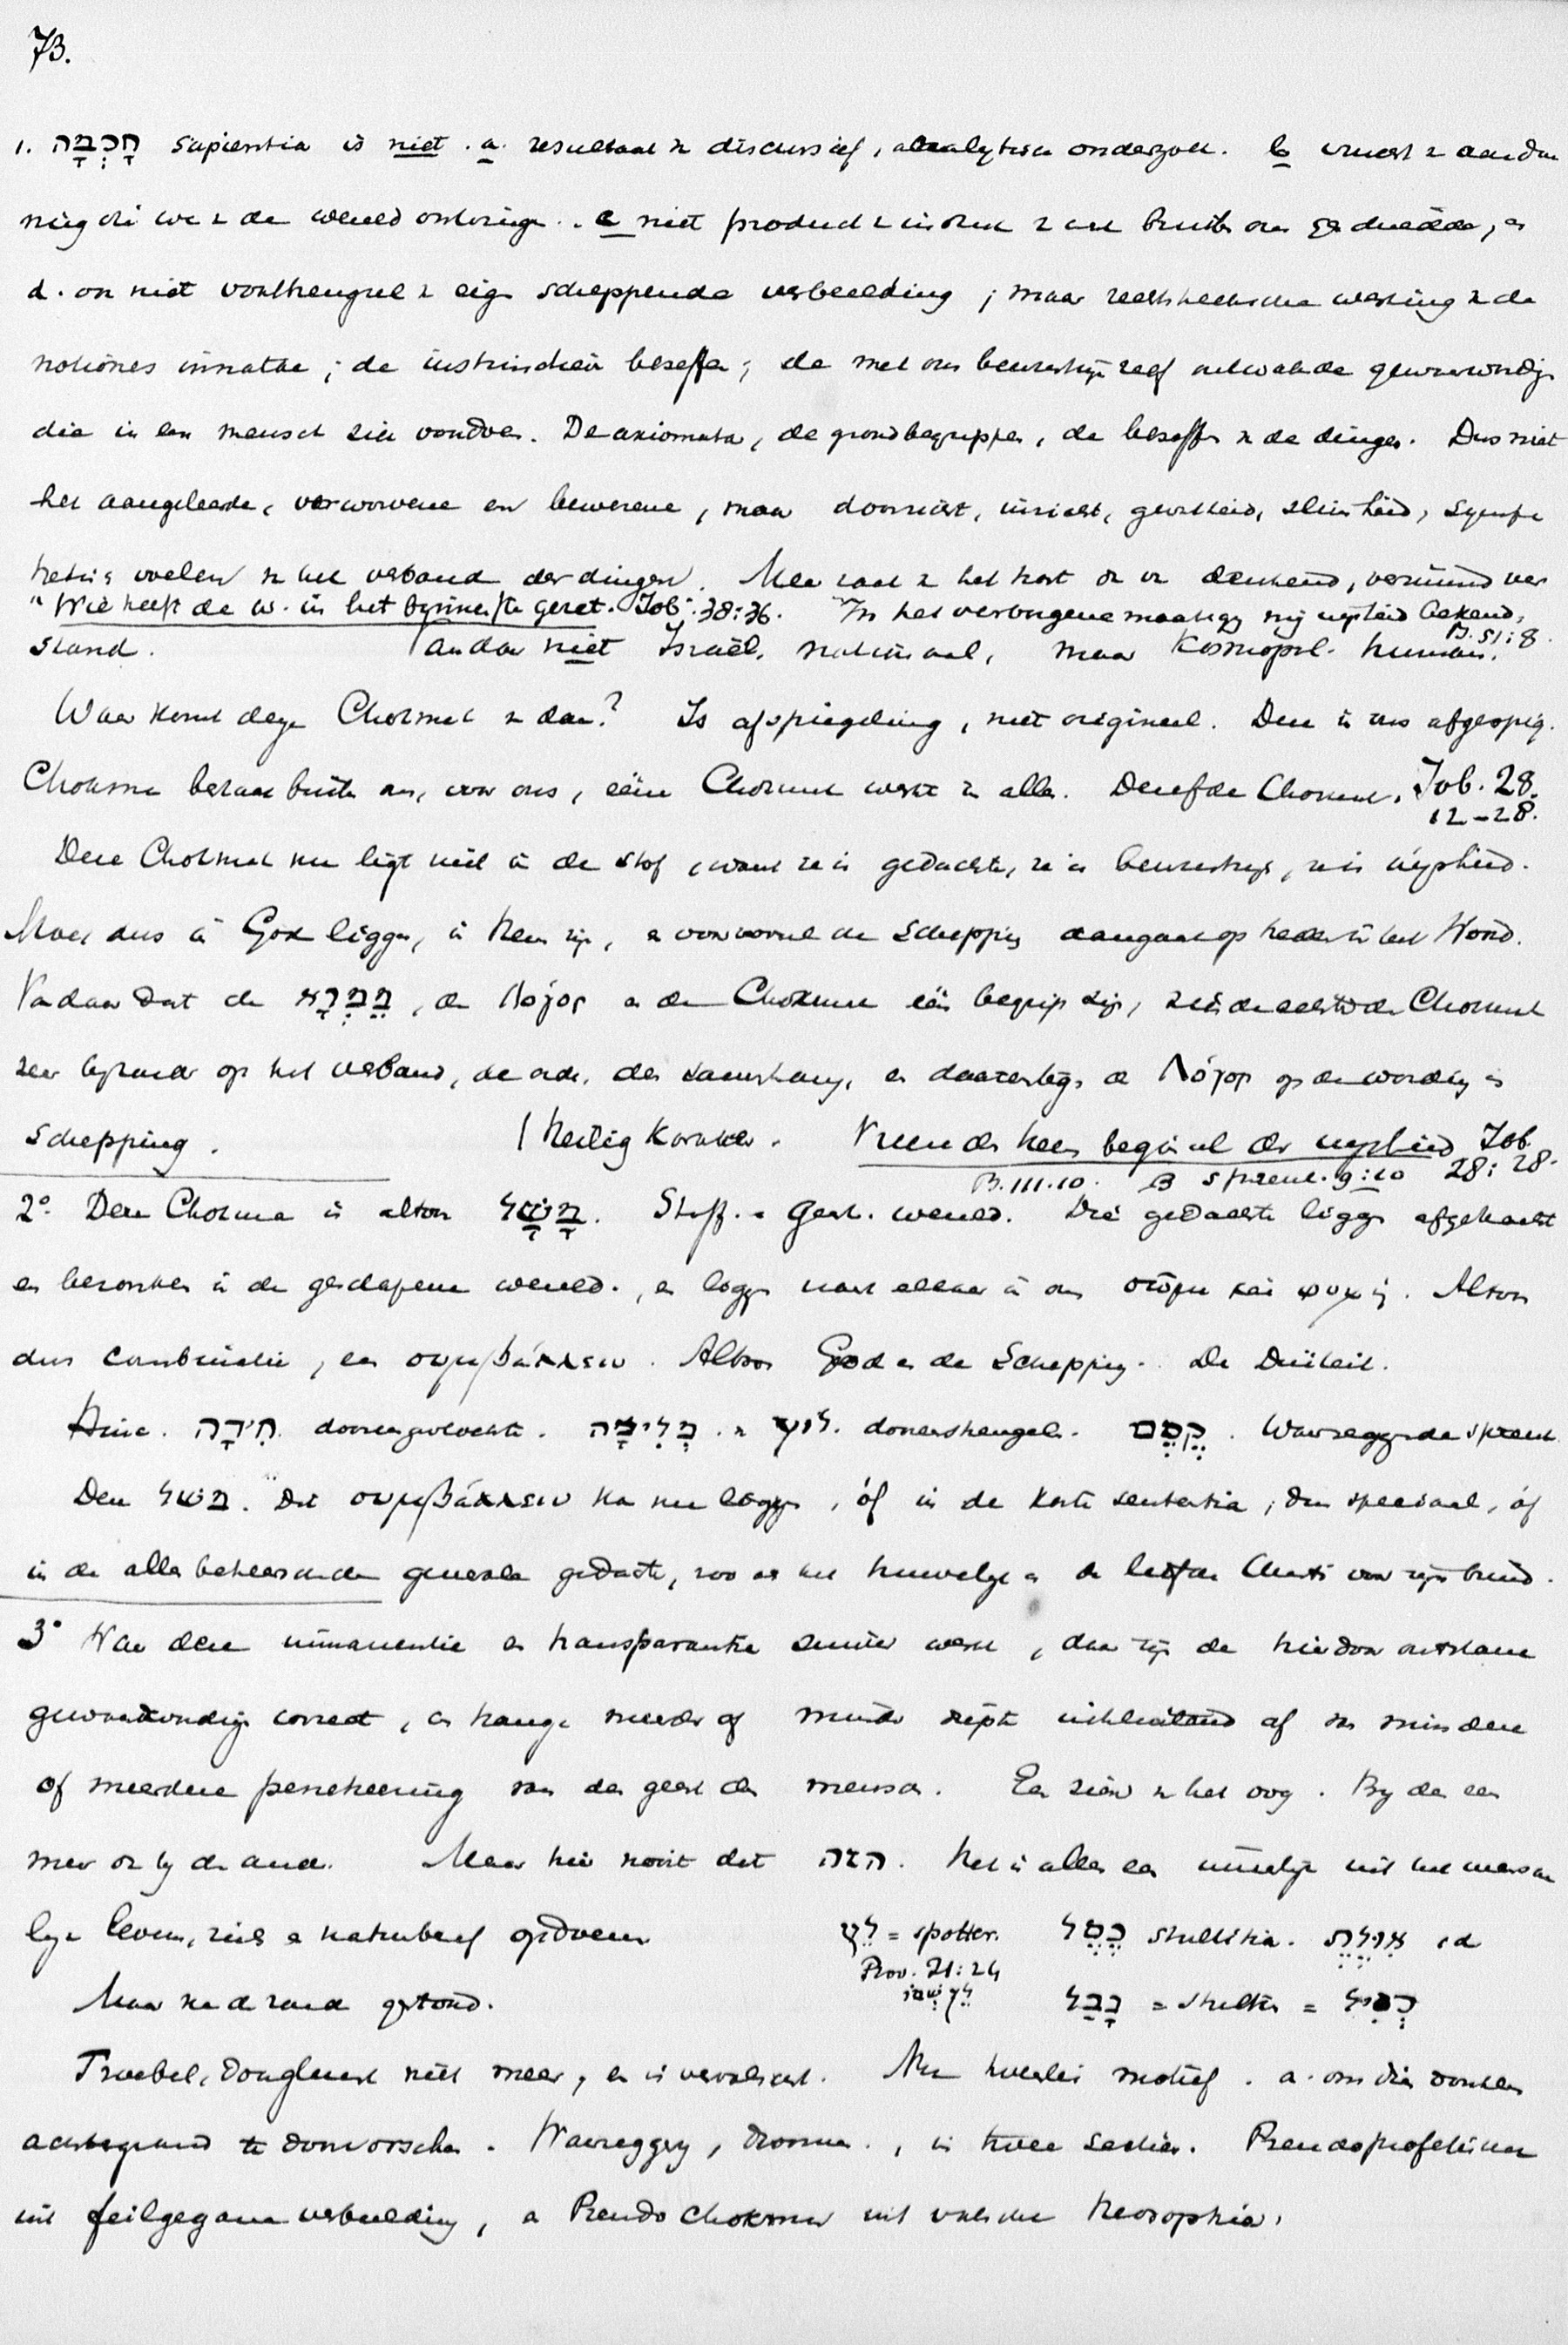 73.
1. חָכְמָה sapientia is niet. a. resultaat v discursief, analytisch onderzoek. b vrucht v aandoe
ning die we v de wereld ontvinge. c niet product v indruk v wat buiten ons geduelde, en
d. ook niet voortbrengsel v eige scheppende verbeelding; maar rechtstreeksche werking v de
notiones innatae; de instinctieve beseffen; de met ons bewustzijn zelf ontwakende gewaarwordinge
die in een mensch zich voordoen. De axiomata, de grondbegrippen, de beseffen v de dingen. Dus niet
het aangeleerde, verworvene en bewezene, maar doorzicht, inzicht, gevatheid, slimheid, sympa
thetisch voelen v het verband der dingen. Meer zaak v het hart dan v denkend, vermind ver
"Wie heeft de w. in het binnenste gezet. Job. 38:36. "In het verborgene maakt gij mij wijsheid bekend,
Ps. 51:8.
stand. Vandaar niet Israël. nationaal, maar Kosmopol. humaan.
Waar komt deze Chokmah v dan? Is afspiegeling, niet origineel. Deze in ons afgespieg.
Chokma bestaat buiten ons, voor ons, ééne Chokmah werkt in alles. Dezelfde Chokmah. Job. 28.
12-28.
Deze Chokmah nu ligt niet in de stof, want ze is gedachte, ze is bewustzijn, ze is wijsheid.
Moet dus in God liggen, in Hem zijn, en voorwaard de schepping aangaat op treden in het Woord.
Vandaar dat de מֵמְרָא, de Λόγος en de Chokma één begrip zijn, zinde echter de Chokmah
zeer bijzonder op het verband, de orde, den samenhang, en daarentegen de Λόγος op de wording en
schepping. | Heilig karakter. Vreeze des Heeren beginsel der wijsheid Job
Ps. 111.10. B Spreuk. 9:10 28:28.
2° Deze Chokma is altoos מָשָׁל. Stoff. en Geest. wereld. Die gedachten liggen afgedrukt
en bezonken in de geschapene wereld., en liggen naast elkaar in ons σῶμα καὶ ψυχή. Altoos
dus combinatie, een συμβάλλειν. Altoos God en de Schepping. De Duiteit.
Hinc. חִידָה. dooreengevlochte. מְלִיצָה. v לוץ. dooreenstrengelen. קֶסֶם. Waarzeggende spreuk
Deze משל. Dit συμβάλλειν ka nu liggen, óf in de korte sententia, dus speciaal, óf
in de alles beheerschende generale gedachte, zoo als het huwelijk en de liefde Christi voor zijn bruid.
3° Waar deze immanentie en transparantie zuiver werkt, daar zijn de hierdoor ontstane
gewaarwordinge correct, en hange meerder of minder diepte uitsluitend af van mindere
of meerdere penetreering van den geest des menschen. Een zien v het oog. Bij den een
meer dan bij de ander. Maar hier nooit dat הזה. Het is alles een innerlijk uit het mensche
lijk leven, ziels en natuurbesef opdoemen
לֵץ = spotter. כֶּסֶל stultitia. אִוֶּלֶת id
Prov. 21:24
לֵץ שְׁמוֹ
נָבָל = stultus = כְּסִיל
Maar na de zonde gestoord.
Troebel, doorgluurt niet meer, en is vervalscht. Nu tweeërlei motief. a. om die donkere
achtergrond te doorvorschen. Waarzeggerij, droomen., in twee secties. Pseudoprofetisme
uit feilgegane verbeelding, en Pseudo chokma uit valsche theosophie.